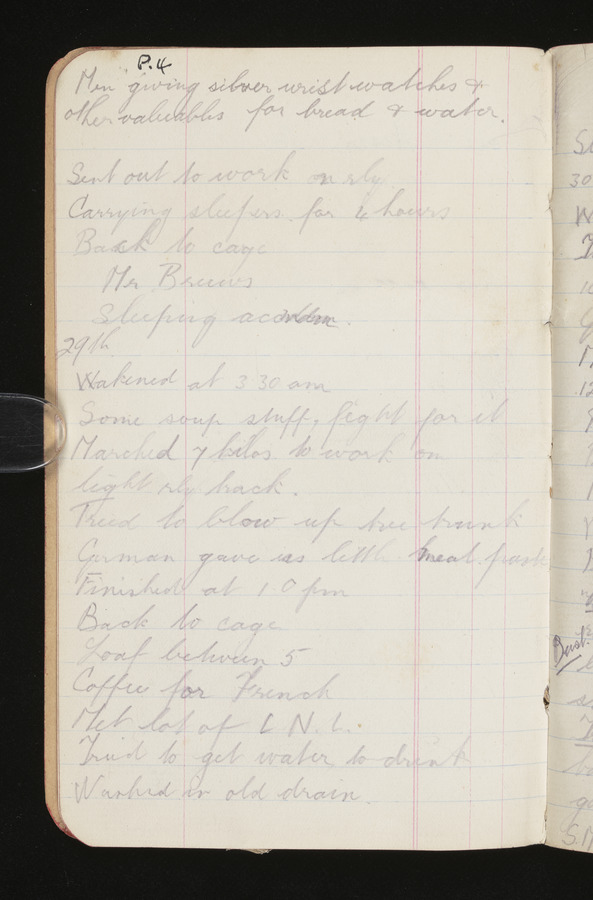 P.4
Men giving silver wrist watches &
other valuables for bread & water.
Sent out to work on rly
Carrying sleepers for 4 hours
Back to cage
Mr
Sleeping accom.
29th
Wakened at 3 30 am
Some soup stuff, fight for it
Marched 7 kilos to work on
light rly track.
Tried to blow up tree trunk
German gave us little meat paste
Finished at 1.0 pm
Back to cage
Loaf between 5
Coffee for French
Met lot of L N. L.
Tried to get water to drink
Washed in old drain.